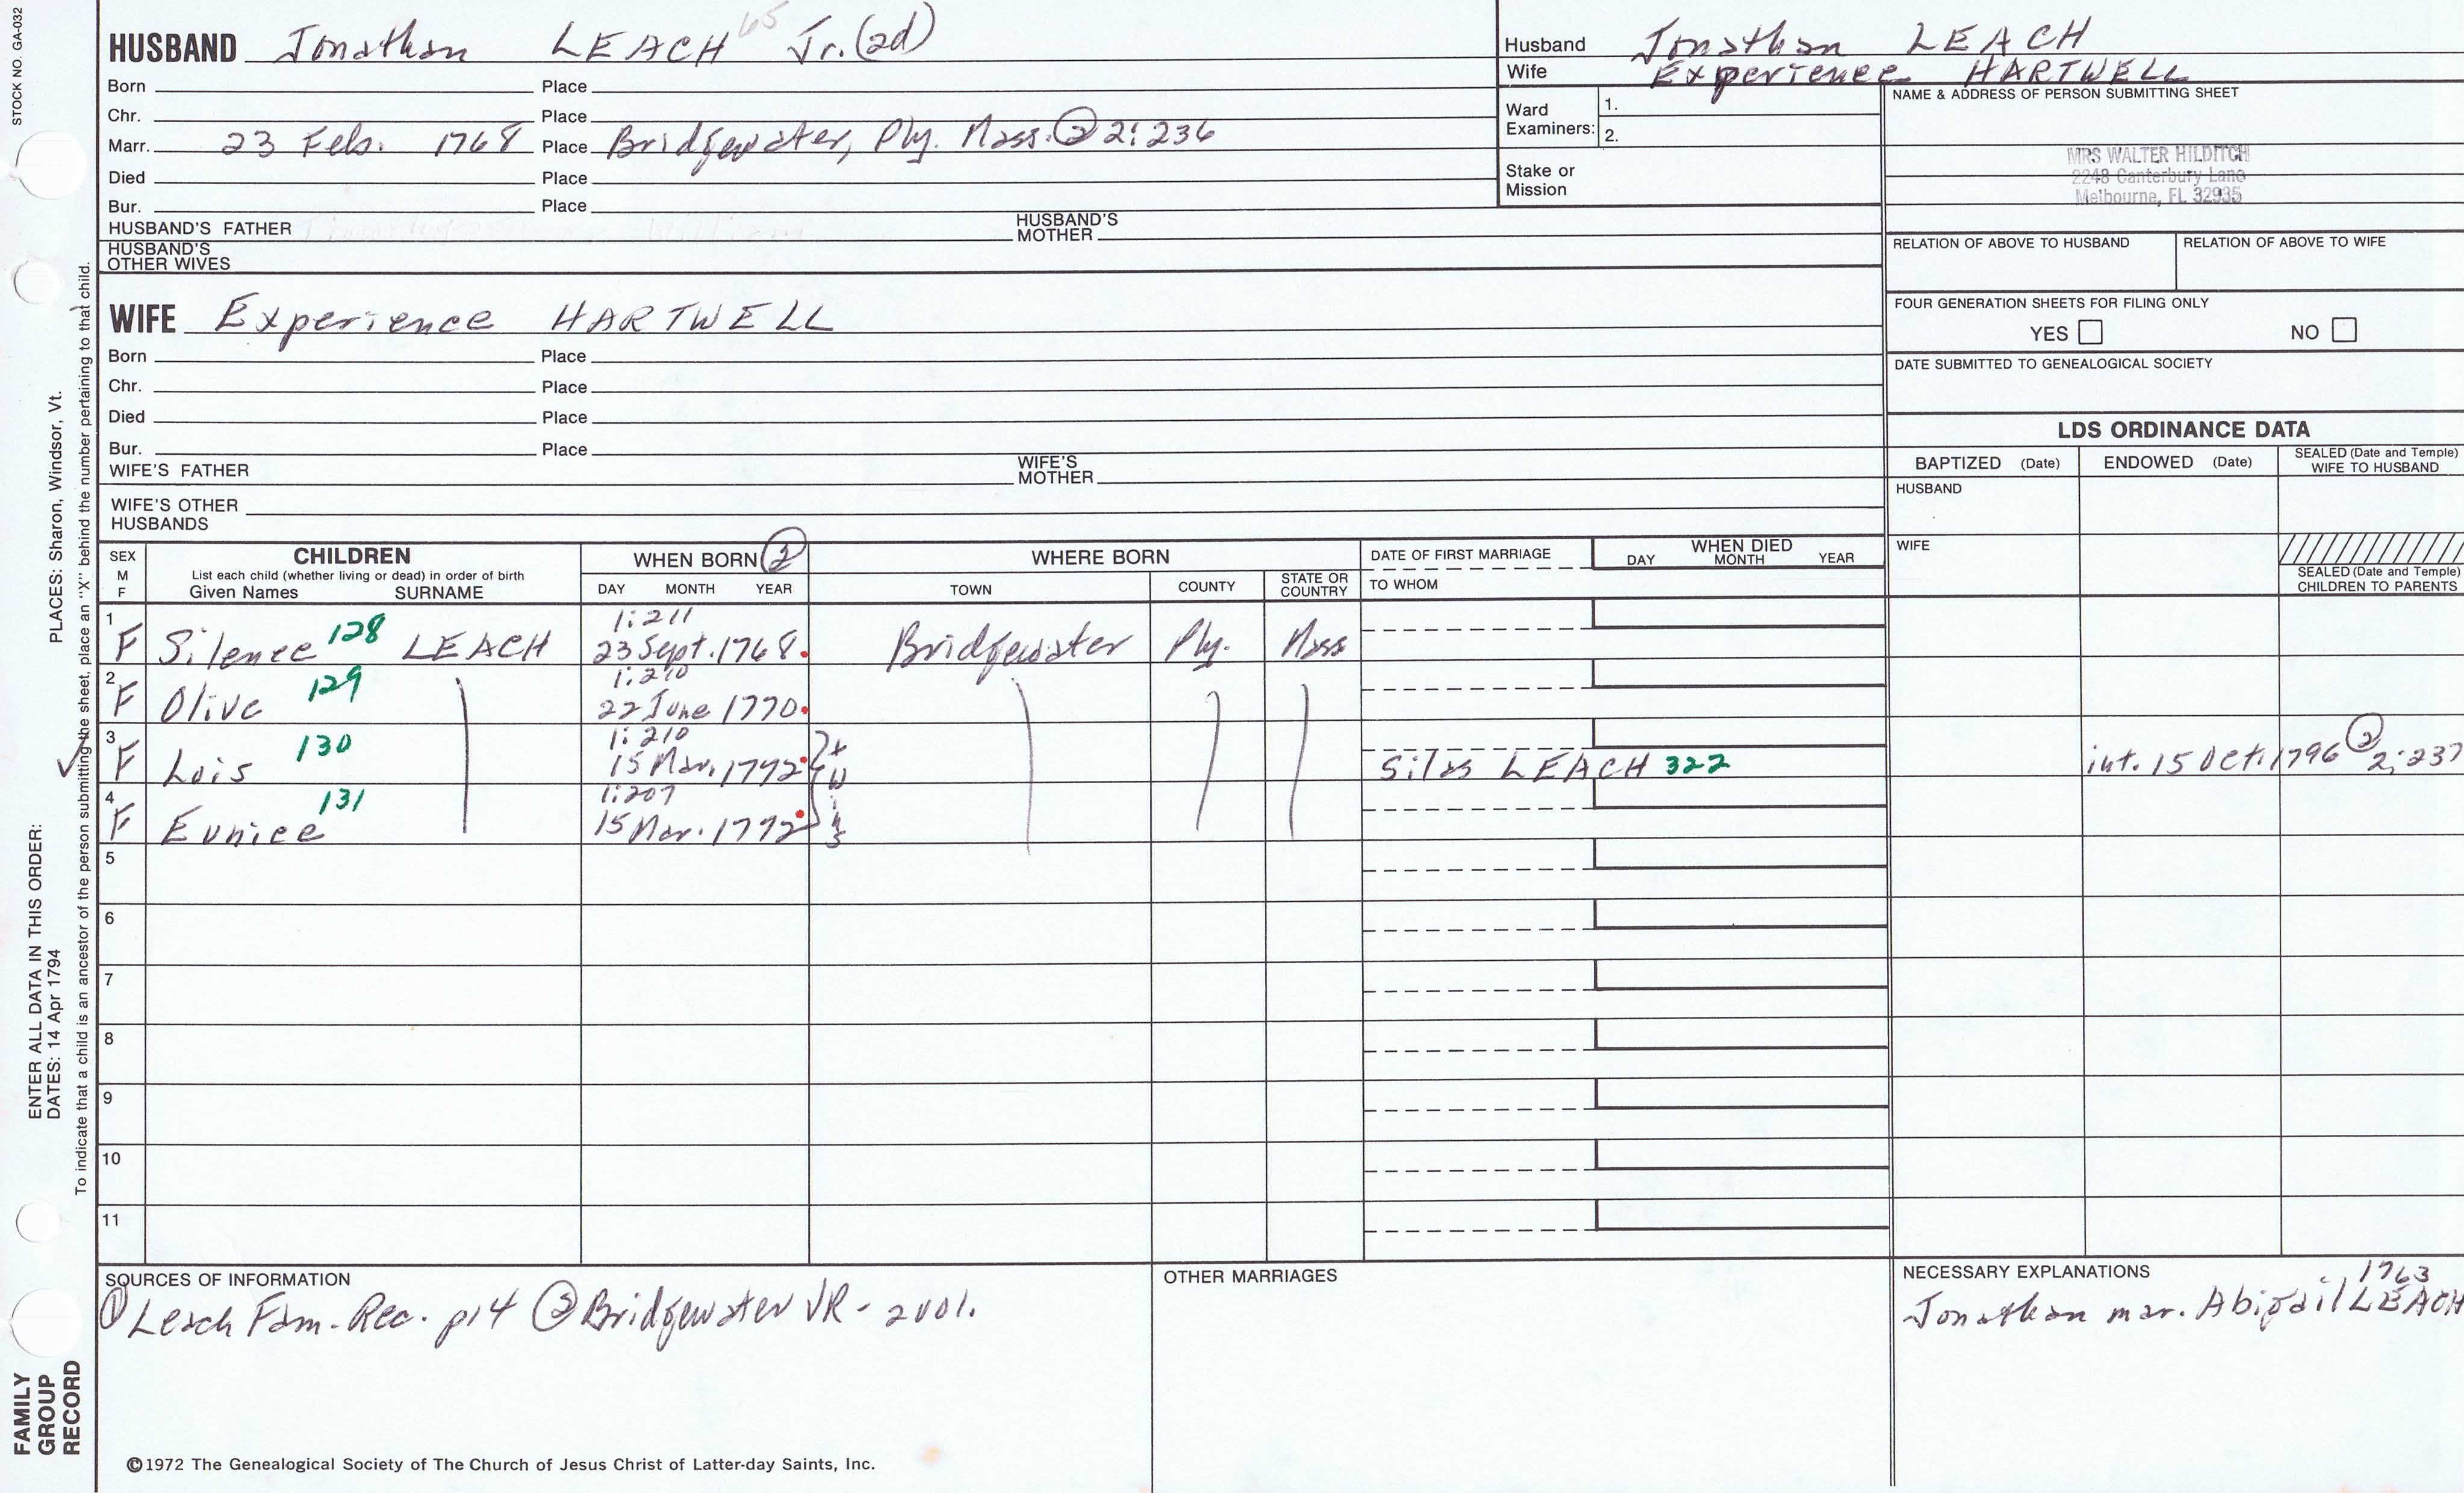 STOCK NO. GA-032
HUSBAND Jonathan LEACH 65 Jr. (2d)
Born Place
Chr. Place
Marr. 23 Feb. 1768 Place Bridgewater, Ply. Mass. ② 2:236
Died Place
Bur. Place
HUSBAND'S FATHER HUSBAND'S MOTHER
HUSBAND'S OTHER WIVES
WIFE Experience HARTWELL
Born Place
Chr. Place
Died Place
Bur. Place
WIFE'S FATHER WIFE'S MOTHER
WIFE'S OTHER HUSBANDS
Husband Jonathan LEACH
Wife Experience HARTWELL
Ward Examiners: 1.
2.
Stake or Mission
NAME & ADDRESS OF PERSON SUBMITTING SHEET
MRS WALTER HILDITCH
2248 Canterbury Lane
Melbourne, FL 32935
RELATION OF ABOVE TO HUSBAND RELATION OF ABOVE TO WIFE
FOUR GENERATION SHEETS FOR FILING ONLY
YES NO
DATE SUBMITTED TO GENEALOGICAL SOCIETY
LDS ORDINANCE DATA
BAPTIZED (Date) ENDOWED (Date) SEALED (Date and Temple) WIFE TO HUSBAND
HUSBAND
WIFE
SEALED (Date and Temple) CHILDREN TO PARENTS
SEX M F
CHILDREN
List each child (whether living or dead) in order of birth
Given Names SURNAME
WHEN BORN ②
DAY MONTH YEAR
WHERE BORN
TOWN COUNTY STATE OR COUNTRY
DATE OF FIRST MARRIAGE
TO WHOM
WHEN DIED
DAY MONTH YEAR
1 1:211
F Silence 128 LEACH 23 Sept. 1768. Bridgewater Ply. Mass
2 1:210
F Olive 129 22 June 1770.
3 1:210
F Lois 130 15 Mar. 1772 Silas LEACH 322 int. 15 Oct. 1796 ② 2:237
4 1:207
F Eunice 131 15 Mar. 1772 twins
5
6
7
8
9
10
11
SOURCES OF INFORMATION
① Leach Fam. Rec. p14 ② Bridgewater VR - 2 vol.
OTHER MARRIAGES
NECESSARY EXPLANATIONS
1763
Jonathan mar. Abigail LEACH
©1972 The Genealogical Society of The Church of Jesus Christ of Latter-day Saints, Inc.
ENTER ALL DATA IN THIS ORDER:
DATES: 14 Apr 1794 PLACES: Sharon, Windsor, Vt.
To indicate that a child is an ancestor of the person submitting the sheet, place an "X" behind the number pertaining to that child.
FAMILY GROUP RECORD